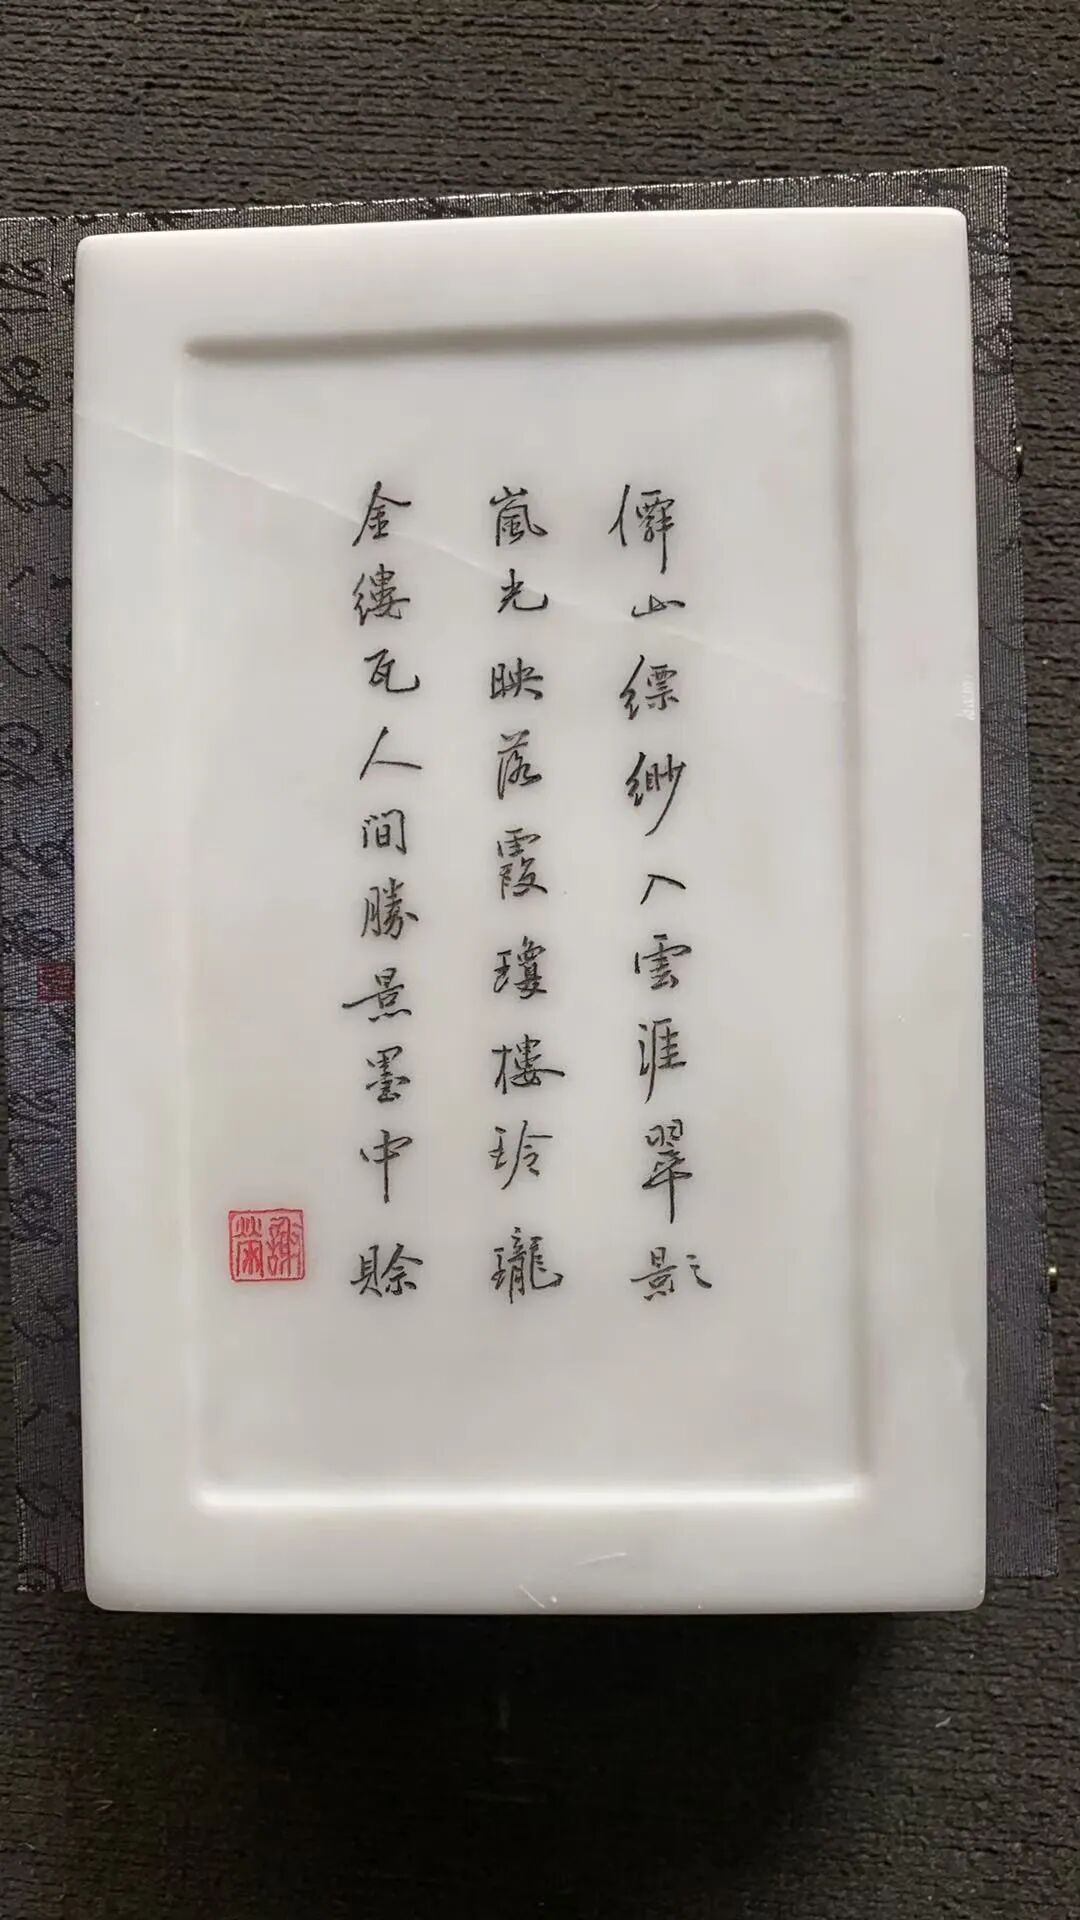 僊山縹緲入雲涯翠影
嵐光映落霞瓊樓玲瓏
金縷瓦人間勝景墨中賒
謝榮